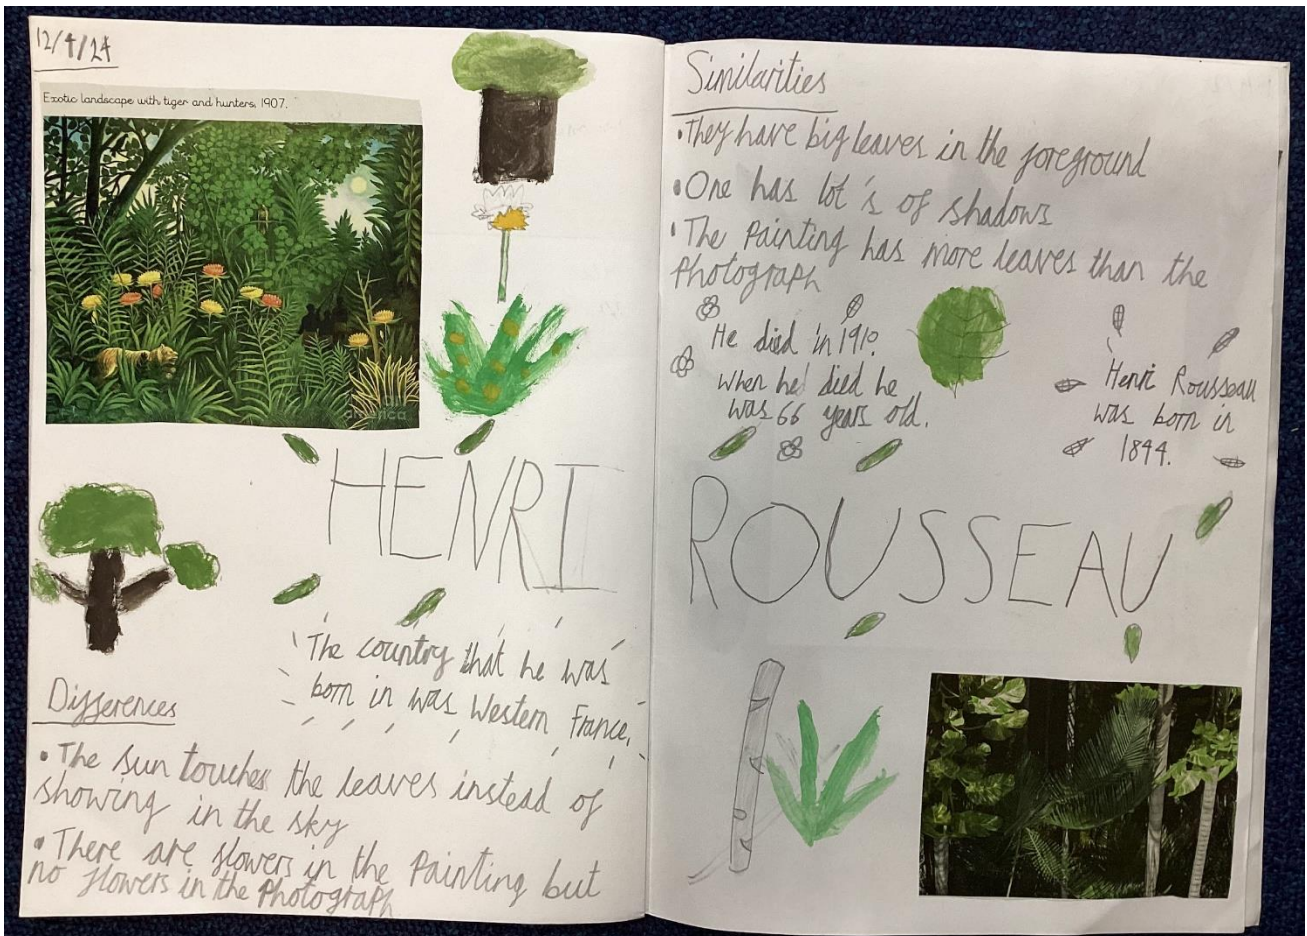 12/4/24
Exotic landscape with tiger and hunters, 1907.
america
HENRI
The country that he was
born in was Western France.
Differences
• The sun touches the leaves instead of
showing in the sky
• There are flowers in the painting but
no flowers in the photograph
Similarities
• They have big leaves in the foreground
• One has lot's of shadows
• The Painting has more leaves than the
Photograph
He died in 1910.
when he died he
was 66 years old.
Henri Rousseau
was born in
1844.
ROUSSEAU